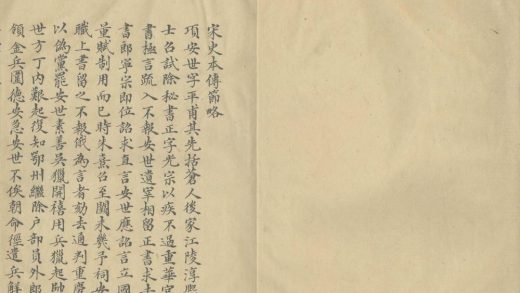 宋史本傳節略
項安世字平甫其先括蒼人後家江陵淳熙
士召試除秘書正字光宗以疾不過重華宮
書極言疏入不報安世遺宰相留正書求去
書郎寧宗即位詔求直言安世應詔言立國
量賦制用而已時朱熹召至闕未幾予祠安
職上書留之不報俄為言者劾去通判重慶
以偽黨罷安世素善吳獵開禧用兵獵起帥
世方丁內艱起復知鄂州繼除户部員外郎
領金兵圍德安急安世不俟朝命徑遣兵解